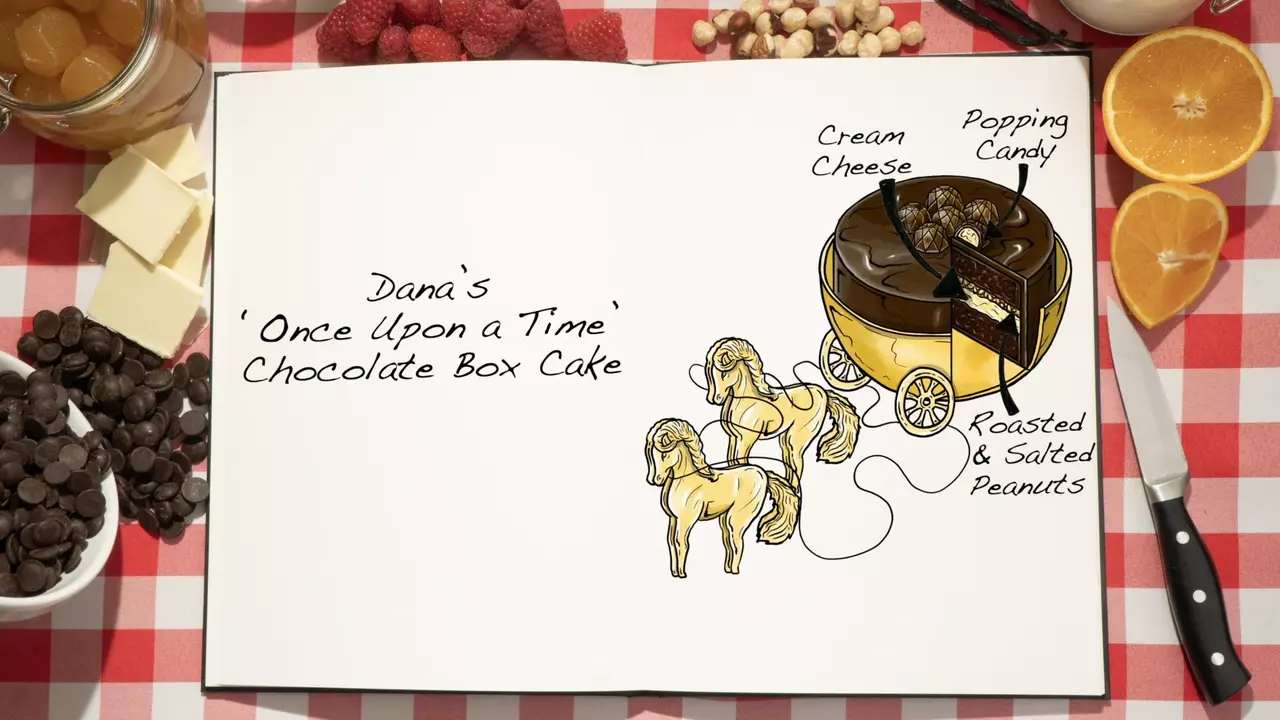 Dana's
'Once Upon a Time'
Chocolate Box Cake
Cream
Cheese
Popping
Candy
Roasted
& Salted
Peanuts